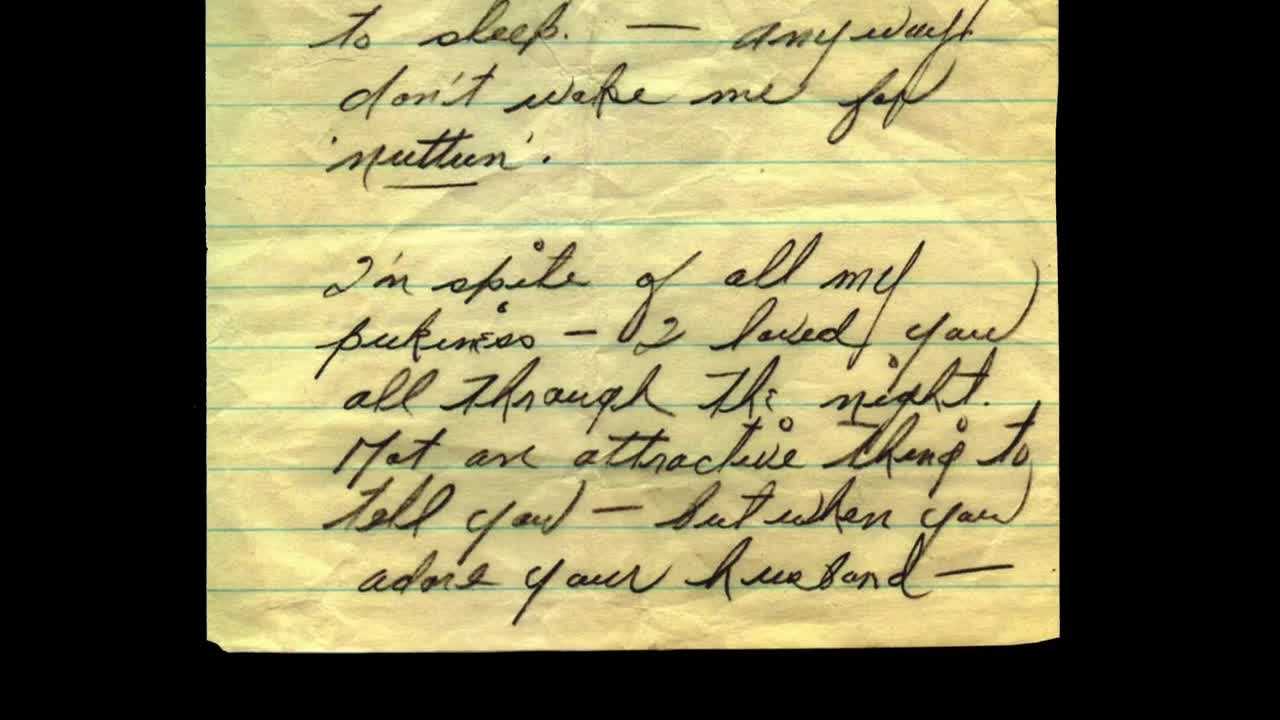 to sleep. — anyway
don't wake me for
'nuttun'.
In spite of all my
pukiness — I loved you
all through the night.
Not an attractive thing to
tell you — but when you
adore your husband —